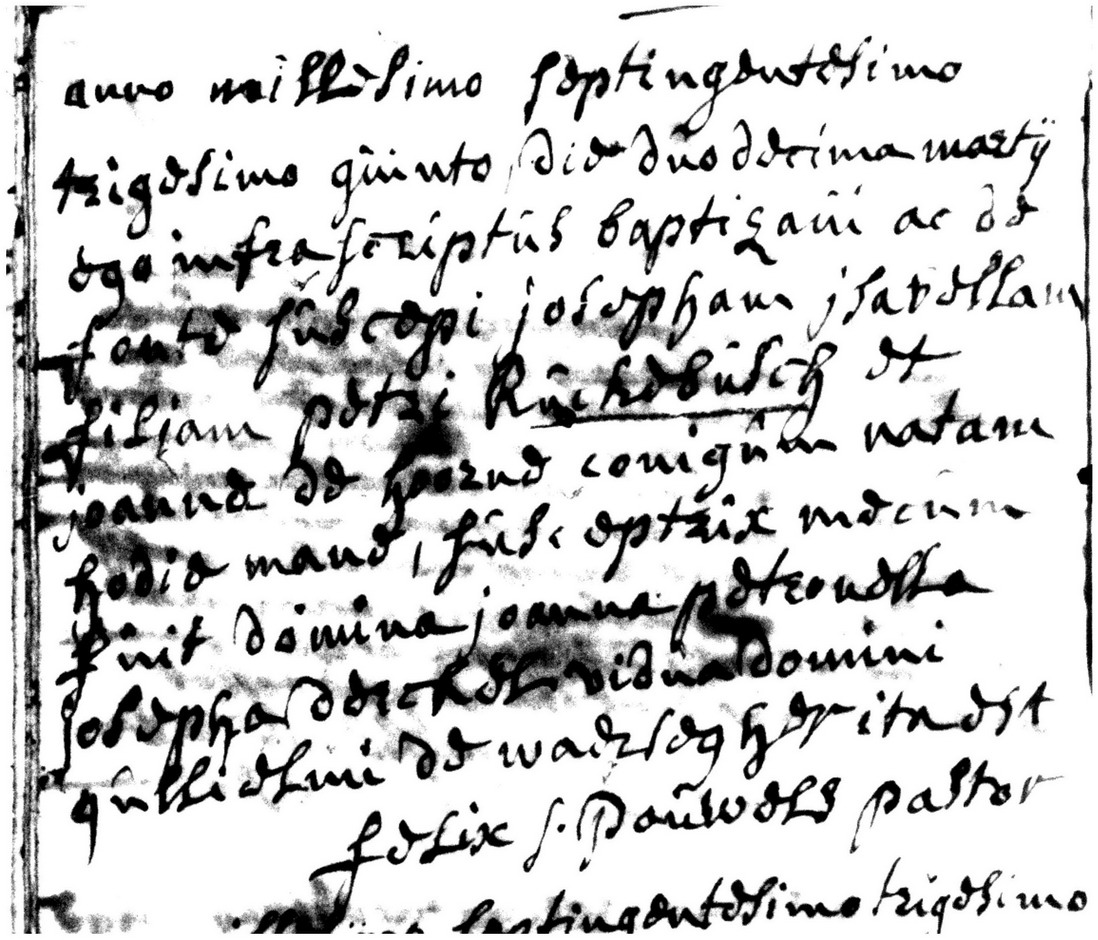 anno millesimo septingentesimo
trigesimo quinto die duodecima martij
ego infrascriptus baptizaui ac de
fonte suscepi josepham jsabellam
filiam petri Ruckebusch et
joanne de hoorne coniugum natam
hodie mane, susceptrix mecum
fuit domina joanna petronella
josepha derckel vidua domini
gullielmi de waerseggher ita est
felix s. Pauwels pastor
septingentesimo trigesimo